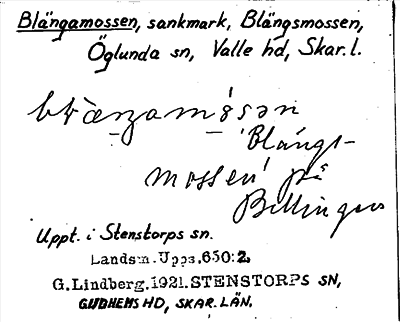 Blängamossen, sankmark, Blängsmossen,
Öglunda sn, Valle hd, Skar.l.
'Blängs-
mossen' på
Billingen
Uppt. i Stenstorps sn.
Landsm. Upps. 650:2.
G. Lindberg. 1921. STENSTORPS SN,
GUDHEMS HD, SKAR. LÄN.